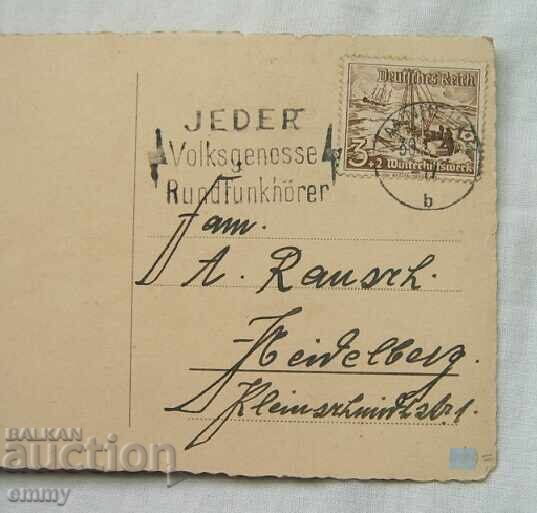 Deutsches Reich
3+2 Winterhilfswerk
JEDER
Volksgenosse
Rundfunkhörer
b
Fam.
A. Rausch.
Heidelberg.
Kleinschmidtstr.
BALKAN
auction
emmy